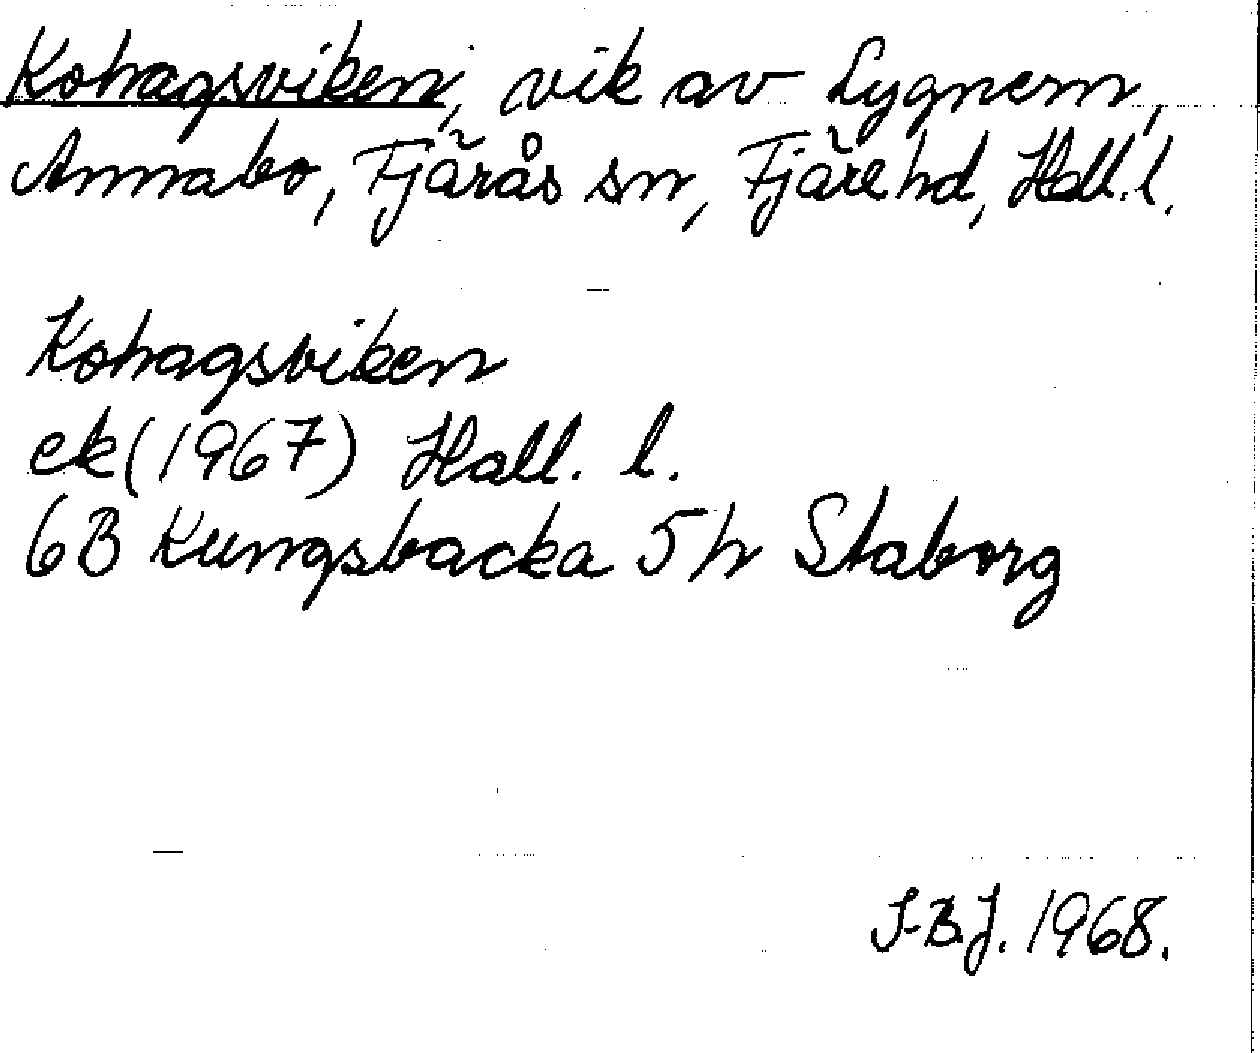 Kohagsviken, vik av Lygnern,
Annabo, Fjärås sn, Fjäre hd, Hall. l.
Kohagsviken
ek (1967) Hall. l.
6B Kungsbacka 5h Staborg
I-B.J. 1968.